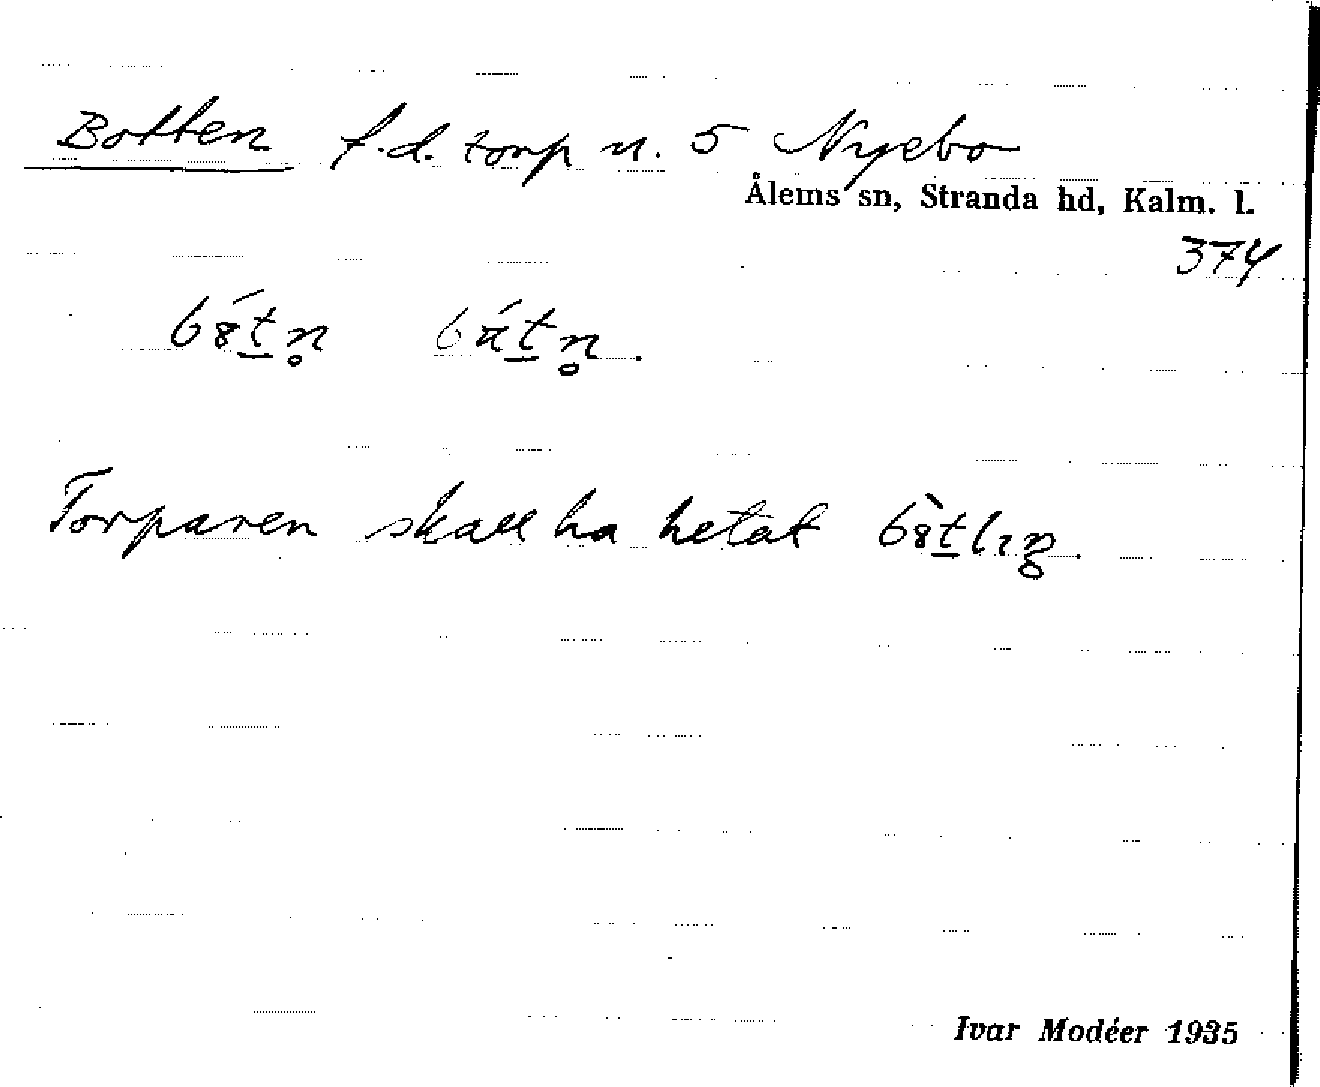 Botten f.d. torp u. 5 Nyebo
Ålems sn, Stranda hd, Kalm. l.
374
Torparen skall ha hetat
Ivar Modéer 1935